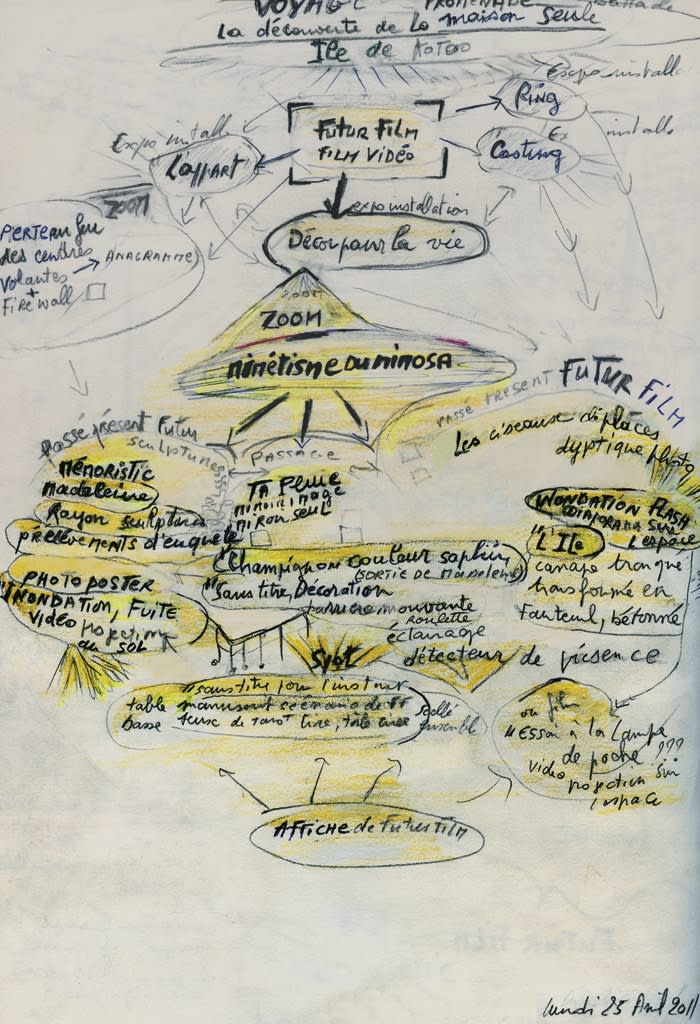 VOYAGE PROMENADE
La découverte de la maison seule
Ile de
Expo installa
Ring
FUTUR FILM
FILM VIDÉO
Expo installa
L'appart
Ex installa
Casting
expo installation
Décor pour la vie
ZOOM
PERTE au feu
des centres
Volantes → ANAGRAMME
+
Firewall
ZOOM
ZOOM
MIMÉTISME DU MIMOSA
PASSÉ PRESENT FUTUR FILM
Les ciseaux déplacés
dyptique photo
Passé présent Futur
sculptures
PASSAGE
MÉMORISTIC
madeleine
Rayon sculptures
prélèvements d'enquête
TA PLUIE
miroir image
miroir seul
INONDATION FLASH
DIAPORAMA SUR
L'ESPACE
"L'Ile
canapé tronqué
transformé en
Fauteuil, bétonné
"Champignon couleur saphir
(SORTIE DE Madeleine)
"Sans titre, Décoration
mouvante
roulette
éclairage
détecteur de présence
PHOTO POSTER
"INONDATION, FUITE
Vidéo projection
au sol
Spot
"sans titre pour l'instant
table manuscrit scénario de FF
basse
ensemble
ou film
"ESSAI à la lampe
de poche ???
vidéo projection sur
l'espace
AFFICHE de Futur FILM
Lundi 25 Avril 2011